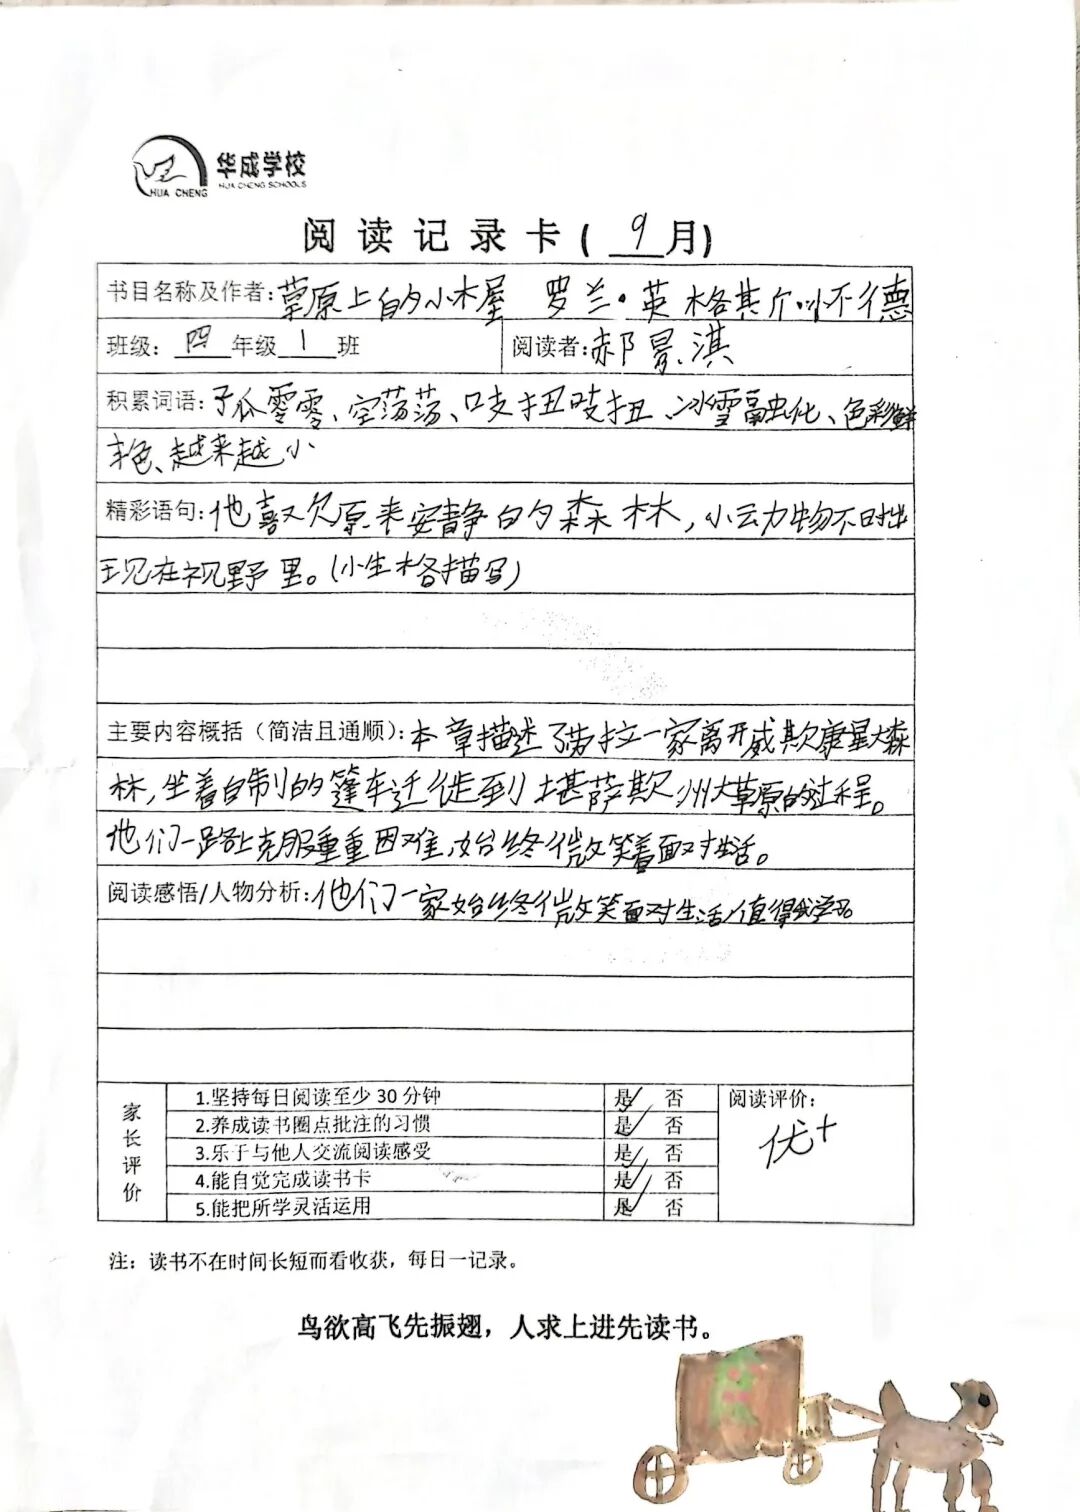 华成学校
HUA CHENG
HUA CHENG SCHOOLS
阅读记录卡( 9 月)
书目名称及作者:草原上的小木屋 罗兰·英格其尔怀德
班级: 四 年级 1 班 阅读者:郝景淇
积累词语:孑瓜零零、空荡荡、吱扭吱扭、冰雪融化、色彩鲜
艳、越来越小
精彩语句:他喜欢原来安静的森林,小动物不时出
现在视野里。(小生格描写)
主要内容概括(简洁且通顺):本章描述了劳拉一家离开威斯康星大森
林,坐着自制的篷车迁徙到堪萨斯州大草原的过程。
他们一路上克服重重困难,始终微笑着面对生活。
阅读感悟/人物分析:他们一家始终微笑面对生活,值得我学习。
家长评价
1.坚持每日阅读至少30分钟 是✓ 否
2.养成读书圈点批注的习惯 是✓ 否
3.乐于与他人交流阅读感受 是✓ 否
4.能自觉完成读书卡 是✓ 否
5.能把所学灵活运用 是✓ 否
阅读评价:
优+
注:读书不在时间长短而看收获,每日一记录。
鸟欲高飞先振翅,人求上进先读书。